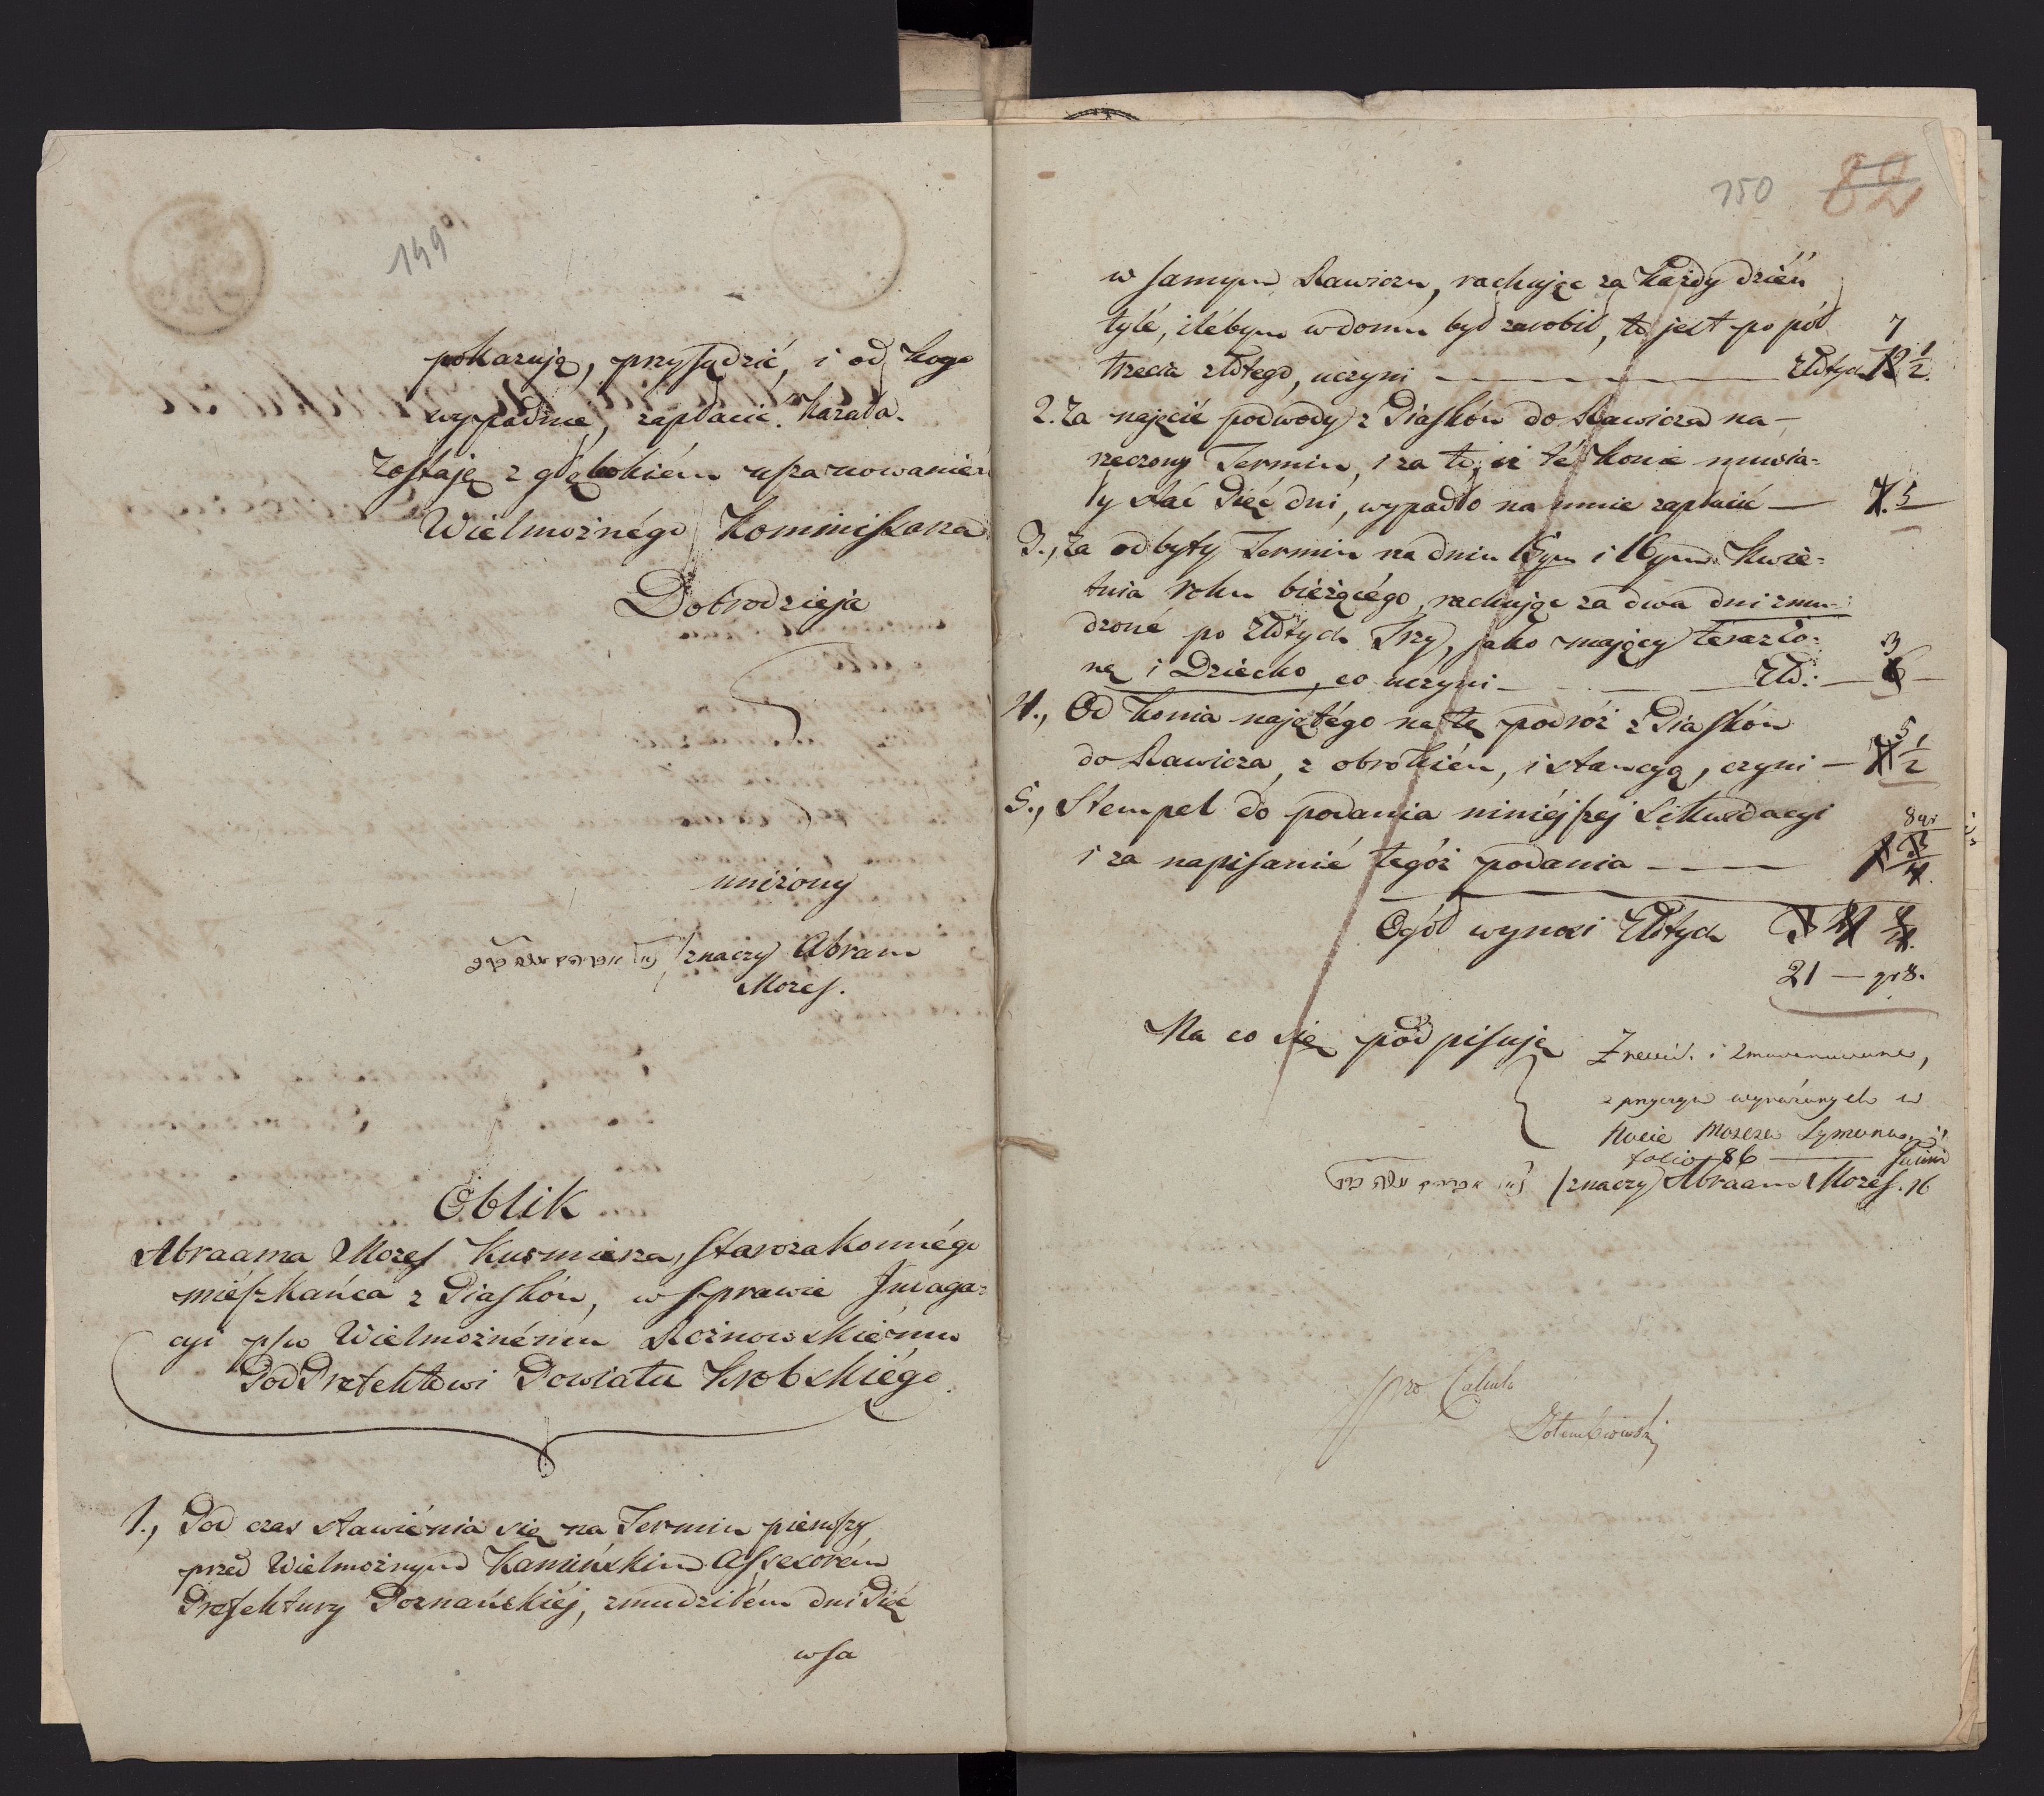 149
pokazują, przysądzić, i od kogo
wypadnie, zapłacić kazała.
Zostaję z głębokiém uszanowaniem
Wielmożnégo Kommissarza
Dobrodzieja
uniżony
znaczy Abram
Mozes.
Oblik
Abraama Mozes Kusmierza, Starozakonnégo
miészkańca z Piasków, w Sprawie Jndaga=
cyi p/co Wielmożnému Rożnowskiému
PodPrefektowi Powiatu Krobskiégo.
1., Pod czas stawiénia się na Termin pierwszy
przed Wielmożnym Kamińskim Assessorém
Prefektury Poznańskiéj, zmudziłém dni Pięć
w sa
150 82
w samym Rawiczu, rachując za każdy dzień
tylé, ilébym w domu był zarobił, to jest po pół
trzecia złotego, uczyni — Złotych 12 1/2.
7
2. Za najęcié podwody z Piasków do Rawicza na-
rzeczony Termin, i za to, iż té konie musia=
ły stać Pięć dni, wypadło na mnie zapłacić — 7. 5
3., Za odbyty Termin na dniu 15ym i 16ym Kwie=
tnia roku bieżącégo, rachując za dwa dni zmu=
dzoné po Złotych Trzy, jako mający teraz Żo=
nę i Dziécko, co uczyni — Złł: — 6 —
3
4., Od konia najętégo na tę podróż z Piasków
do Rawicza, z obrokiém, i stancyą, czyni —
5 1/2
5., Stempel do podania niniéjszej Likwidacyi
i za napisanié tegóż podania —
8 gr
Ogół wynosi Złotych
21 — gr 8.
Na co się podpisuję
i
z przyczyn wyrażonych w
Nocie Mozesa
folio 86
znaczy Abraam Mozes. 16
pro Calculo